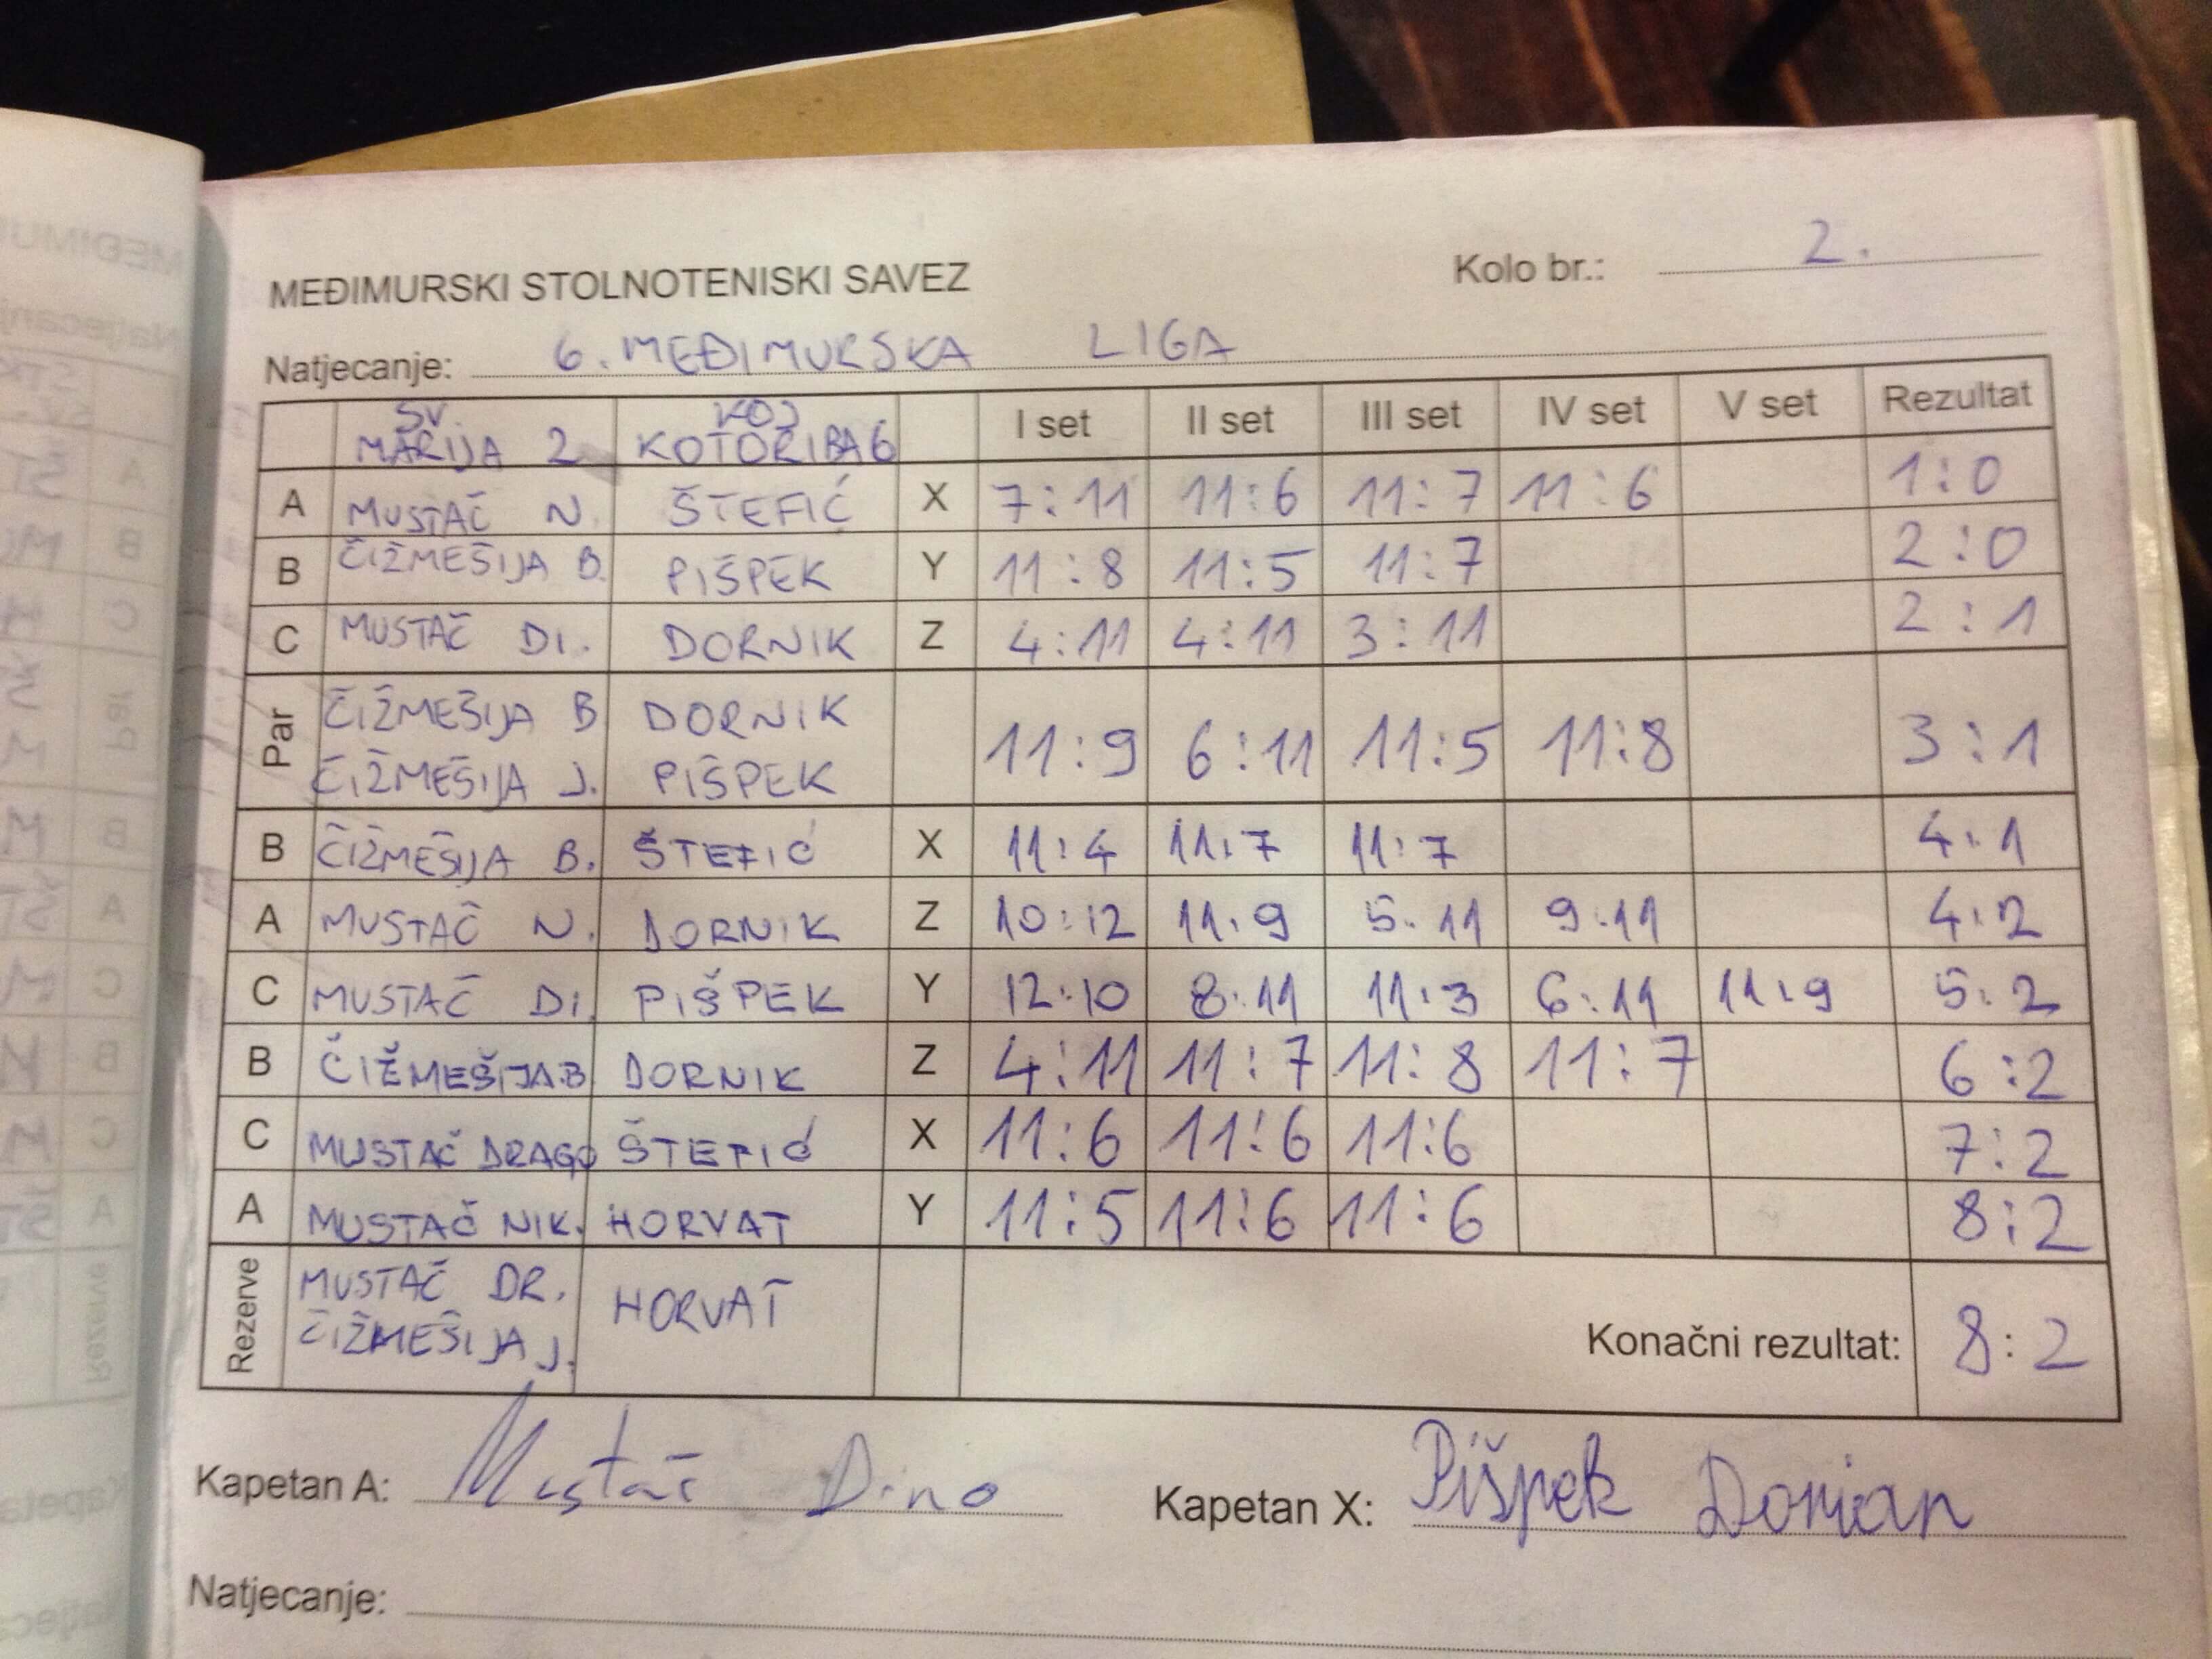 MEĐIMURSKI STOLNOTENISKI SAVEZ Kolo br.: 2.
Natjecanje: 6. MEĐIMURSKA LIGA
SV. MARIJA 2 KOJ KOTORIBA 6 I set II set III set IV set V set Rezultat
A MUSTAČ N. ŠTEFIĆ X 7:11 11:6 11:7 11:6 1:0
B ČIŽMEŠIJA B. PIŠPEK Y 11:8 11:5 11:7 2:0
C MUSTAČ DI. DORNIK Z 4:11 4:11 3:11 2:1
Par ČIŽMEŠIJA B DORNIK 11:9 6:11 11:5 11:8 3:1
ČIŽMEŠIJA J. PIŠPEK
B ČIŽMEŠIJA B. ŠTEFIĆ X 11:4 11:7 11:7 4:1
A MUSTAČ N. DORNIK Z 10:12 11:9 5:11 9:11 4:2
C MUSTAČ DI. PIŠPEK Y 12:10 8:11 11:3 6:11 11:9 5:2
B ČIŽMEŠIJA B DORNIK Z 4:11 11:7 11:8 11:7 6:2
C MUSTAČ DRAGO ŠTEFIĆ X 11:6 11:6 11:6 7:2
A MUSTAČ NIK. HORVAT Y 11:5 11:6 11:6 8:2
Rezerve MUSTAČ DR. HORVAT Konačni rezultat: 8:2
ČIŽMEŠIJA J.
Kapetan A: Mustač Dino Kapetan X: Pišpek Dorian
Natjecanje: